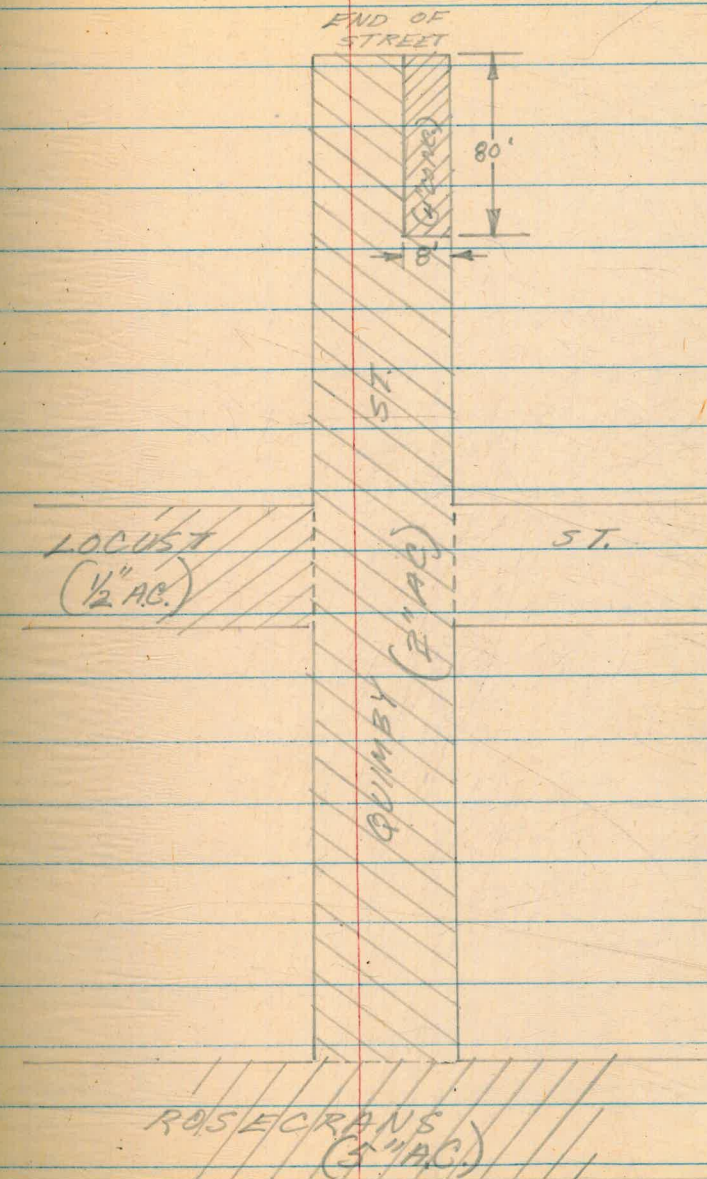 END OF
STREET
80'
8'
ST.
LOCUST
(1/2" A.C.)
ST.
QUIMBY (2" AC)
ROSECRANS
(5" A.C.)